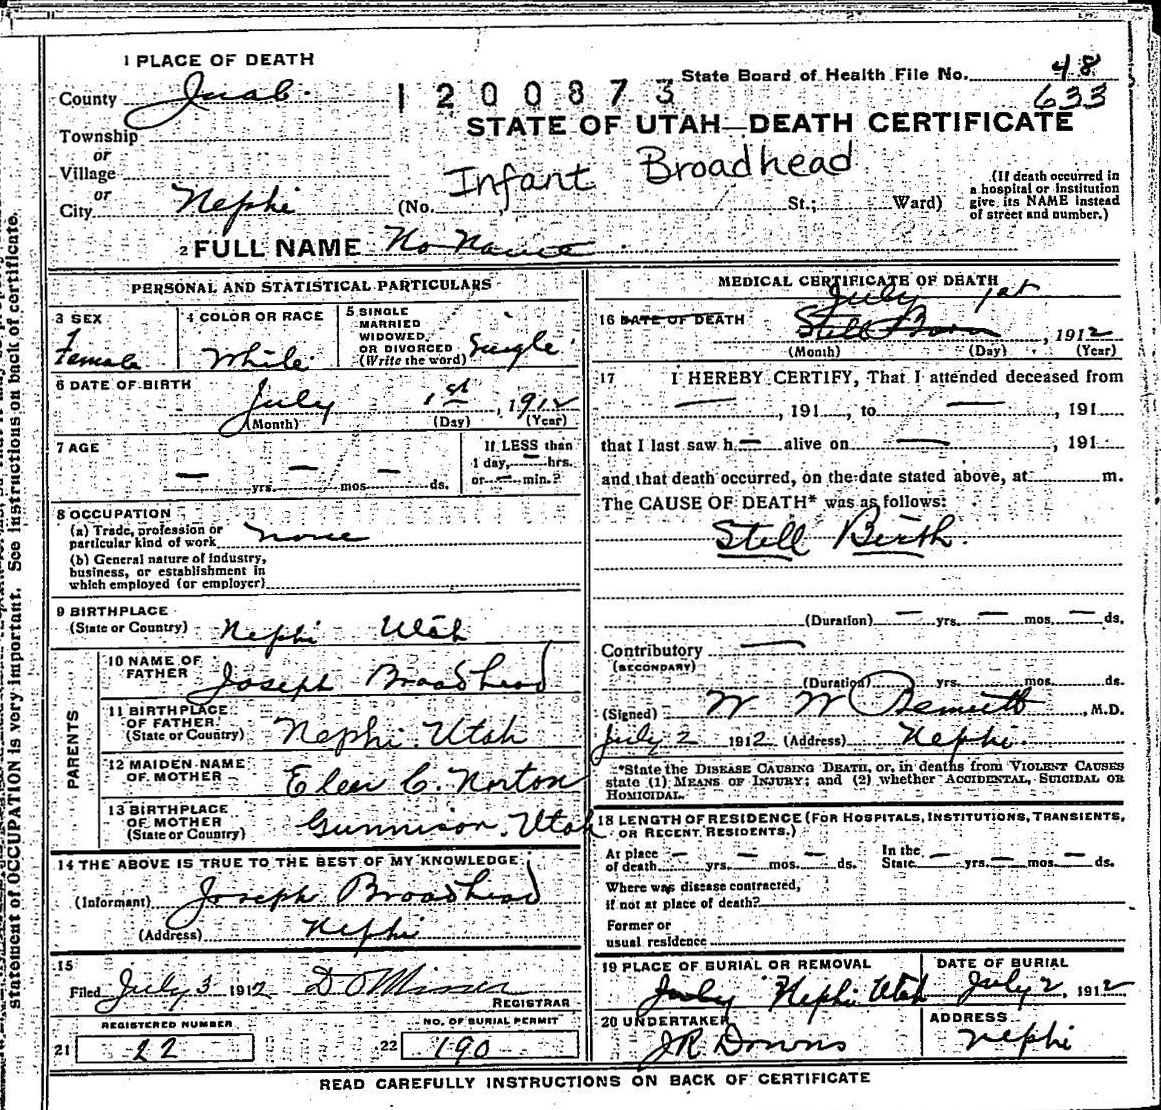 1 PLACE OF DEATH
County Juab.
1200873
State Board of Health File No. 48
633
STATE OF UTAH—DEATH CERTIFICATE
Township
or
Village
or
City Nephi
Infant Broadhead
(No. , St.; Ward)
(If death occurred in
a hospital or institution
give its NAME instead
of street and number.)
2 FULL NAME No Name
PERSONAL AND STATISTICAL PARTICULARS
3 SEX
Female
4 COLOR OR RACE
White
5 SINGLE
MARRIED
WIDOWED,
OR DIVORCED
(Write the word) Single
6 DATE OF BIRTH
July 1st, 1912
(Month) (Day) (Year)
7 AGE
— yrs. — mos. — ds.
If LESS than
1 day, — hrs.
or — min.?
8 OCCUPATION
(a) Trade, profession or
particular kind of work none
(b) General nature of industry,
business, or establishment in
which employed (or employer)
9 BIRTHPLACE
(State or Country) Nephi Utah
PARENTS
10 NAME OF
FATHER Joseph Broadhead
11 BIRTHPLACE
OF FATHER
(State or Country) Nephi. Utah
12 MAIDEN NAME
OF MOTHER Elen C. Norton
13 BIRTHPLACE
OF MOTHER
(State or Country) Gunnison. Utah
14 THE ABOVE IS TRUE TO THE BEST OF MY KNOWLEDGE
(Informant) Joseph Broadhead
(Address) Nephi
15
Filed July 3 1912 D O Miner
REGISTRAR
REGISTERED NUMBER
21 22
NO. OF BURIAL PERMIT
22 190
MEDICAL CERTIFICATE OF DEATH
July 1st
16 DATE OF DEATH Still Born, 1912
(Month) (Day) (Year)
17 I HEREBY CERTIFY, That I attended deceased from
—, 191 , to —, 191
that I last saw h— alive on —, 191
and that death occurred, on the date stated above, at m.
The CAUSE OF DEATH* was as follows:
Still Birth.
(Duration) — yrs. — mos. — ds.
Contributory —
(SECONDARY)
(Duration) yrs. mos. ds.
(Signed) W W , M.D.
July 2 1912 (Address) Nephi.
*State the DISEASE CAUSING DEATH, or, in deaths from VIOLENT CAUSES
state (1) MEANS OF INJURY; and (2) whether ACCIDENTAL, SUICIDAL OR
HOMICIDAL.
18 LENGTH OF RESIDENCE (FOR HOSPITALS, INSTITUTIONS, TRANSIENTS,
OR RECENT RESIDENTS.)
At place
of death — yrs. — mos. — ds.
In the
State — yrs. — mos. — ds.
Where was disease contracted,
if not at place of death?
Former or
usual residence
19 PLACE OF BURIAL OR REMOVAL
July Nephi Utah
DATE OF BURIAL
July 2, 1912
20 UNDERTAKER
J R Downs
ADDRESS
Nephi
READ CAREFULLY INSTRUCTIONS ON BACK OF CERTIFICATE
statement of OCCUPATION is very important. See instructions on back of certificate.